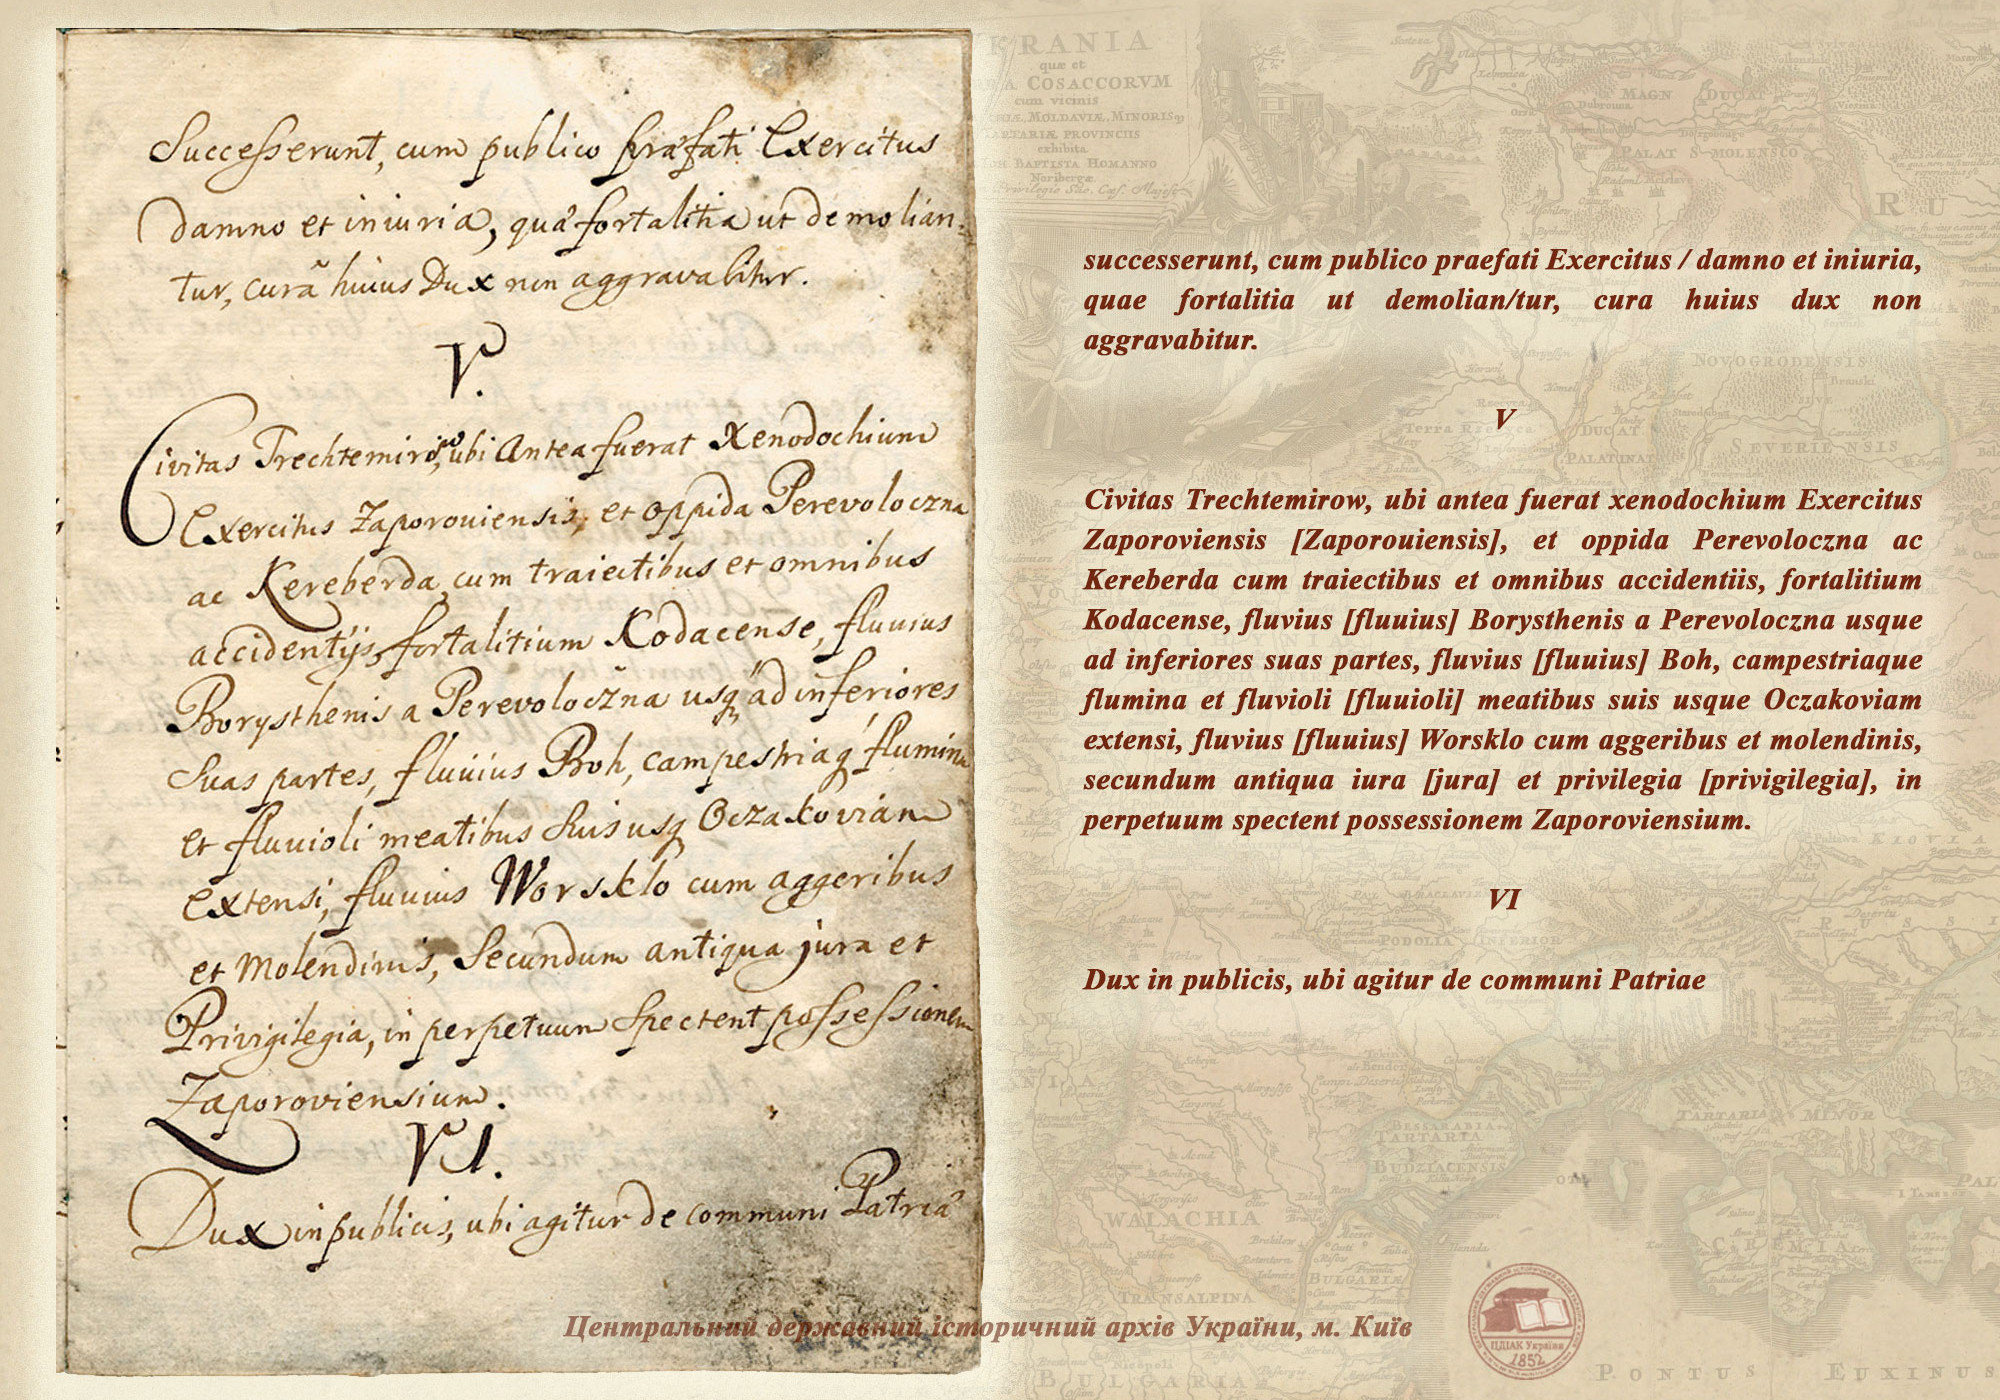 Successerunt, cum publico præfati Exercitus
damno et iniuria, quæ fortalitia ut demolian-
tur, curâ huius Dux non aggravabitur.
V.
Civitas Trechtemirow, ubi Antea fuerat Xenodochium
Exercitus Zaporouiensis, et oppida Perevoloczna
ac Kereberda cum traiectibus et omnibus
accidentijs, fortalitium Kodacense, fluuius
Borysthenis a Perevoloczna usq ad inferiores
Suas partes, fluuius Boh, campestriaq flumina
et fluuioli meatibus Suis usq Oczakoviam
extensi, fluuius Worsklo cum aggeribus
et Molendinis, Secundum antiqua jura et
Privigilegia, in perpetuum Spectent possessionem
Zaporoviensium.
VI.
Dux in publicis, ubi agitur de communi Patriæ
successerunt, cum publico praefati Exercitus / damno et iniuria,
quae fortalitia ut demolian/tur, cura huius dux non
aggravabitur.
V
Civitas Trechtemirow, ubi antea fuerat xenodochium Exercitus
Zaporoviensis [Zaporouiensis], et oppida Perevoloczna ac
Kereberda cum traiectibus et omnibus accidentiis, fortalitium
Kodacense, fluvius [fluuius] Borysthenis a Perevoloczna usque
ad inferiores suas partes, fluvius [fluuius] Boh, campestriaque
flumina et fluvioli [fluuioli] meatibus suis usque Oczakoviam
extensi, fluvius [fluuius] Worsklo cum aggeribus et molendinis,
secundum antiqua iura [jura] et privilegia [privigilegia], in
perpetuum spectent possessionem Zaporoviensium.
VI
Dux in publicis, ubi agitur de communi Patriae
Центральний державний історичний архів України, м. Київ
ЦДІАК України
1852
KRANIA
quæ et
COSACCORVM
cum vicinis
MOLDAVIÆ, MINORIS
TARTARIÆ PROVINCIIS
exhibita
BAPTISTA HOMANNO
Noribergæ
MAGN DUCAT
PALAT SMOLENSCO
RU
NOVOGRODENSIS
DUCAT
SEVERIENSIS
PALATINAT
KIOVIA
PODOLIA INFERIOR
TARTARIA MINOR
BESSARABIA
TARTARIA
BUDZIACENSIS
WALACHIA
BULGARIÆ
TRANSALPINA
CRIMEA
BULGARIA
PONTUS EUXINUS